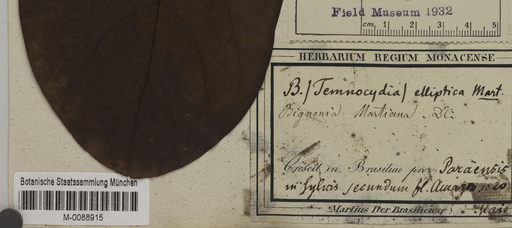 Field Museum 1932
cm 1 2 3 4 5
HERBARIUM REGIUM MONACENSE
B. / Temnocydia / elliptica Mart.
Bignonia Martiana DC.
Crescit in Brasiliae prov. Paraënsis
in sylvis secundum fl. Amaz.
Martius Iter Brasiliense
Botanische Staatssammlung München
M-0088915